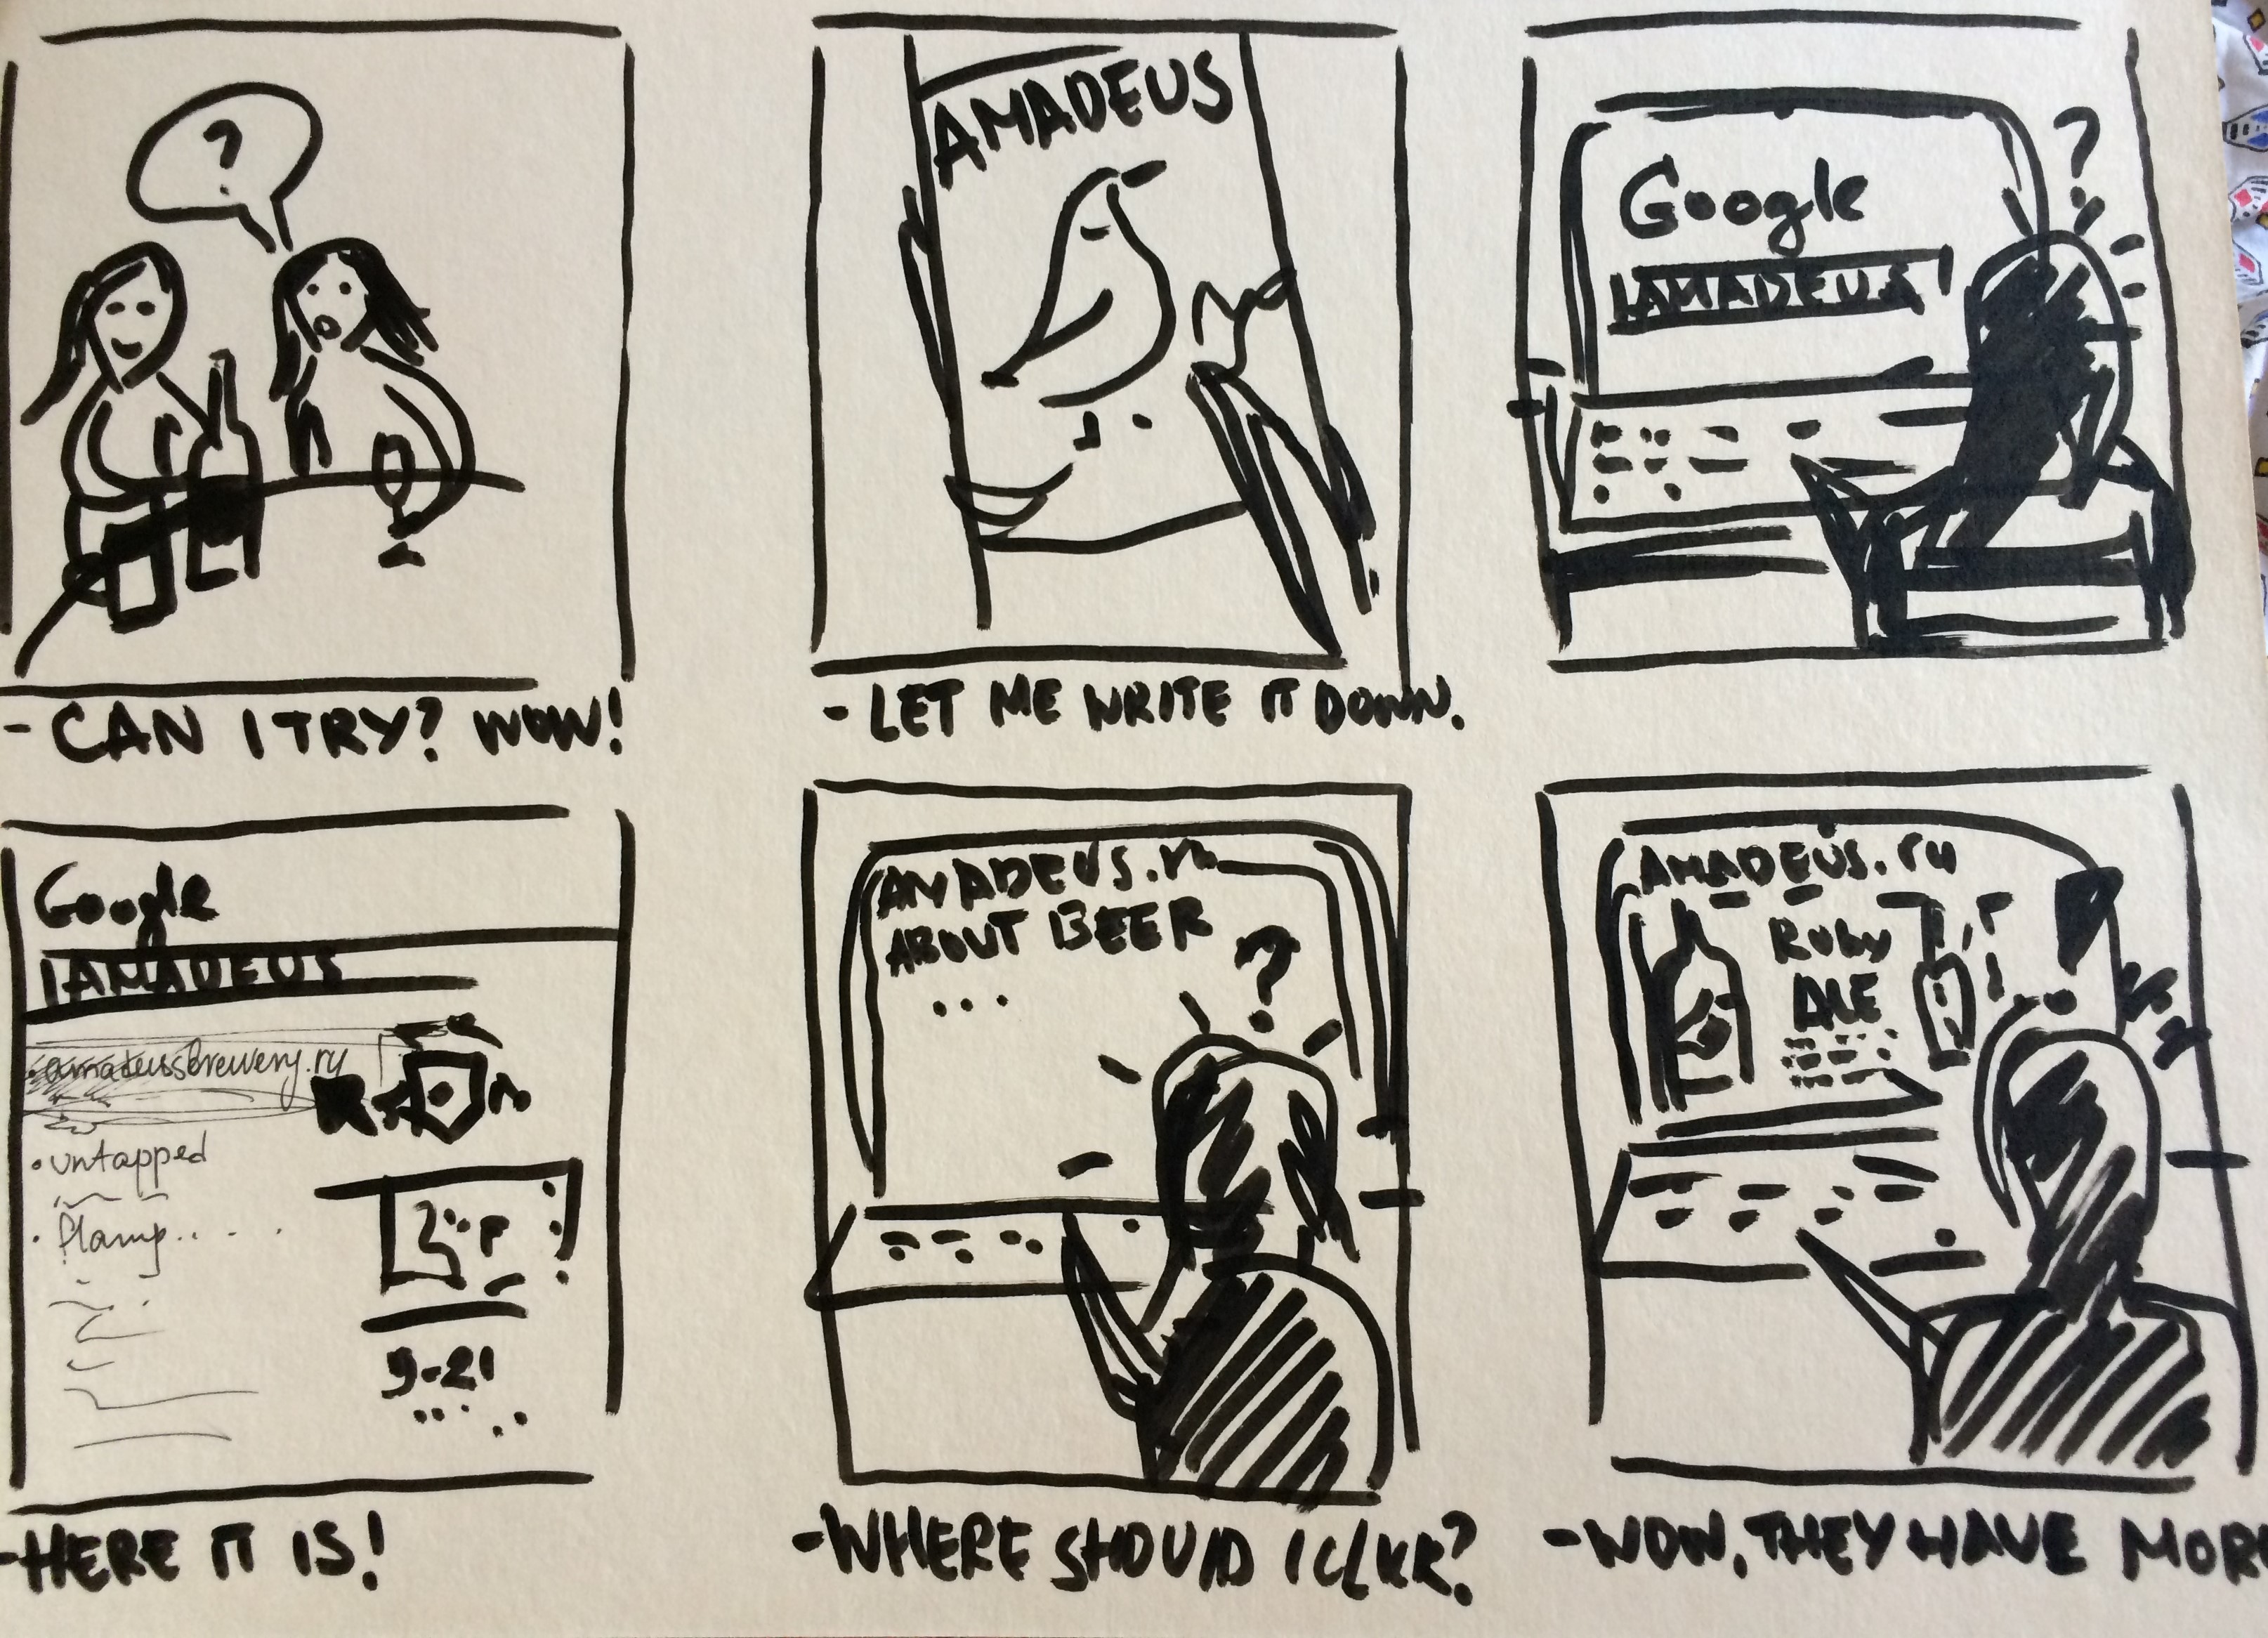 ?
- CAN I TRY? WOW!
AMADEUS
- LET ME WRITE IT DOWN.
Google
AMADEUS
?
Google
AMADEUS
• amadeusbrewery.ru
• untapped
•
9-21
- HERE IT IS!
AMADEUS.ru
ABOUT BEER
...
?
- WHERE SHOULD I CLICK?
AMADEUS.ru
RUBY
ALE
!
- WOW, THEY HAVE MORE